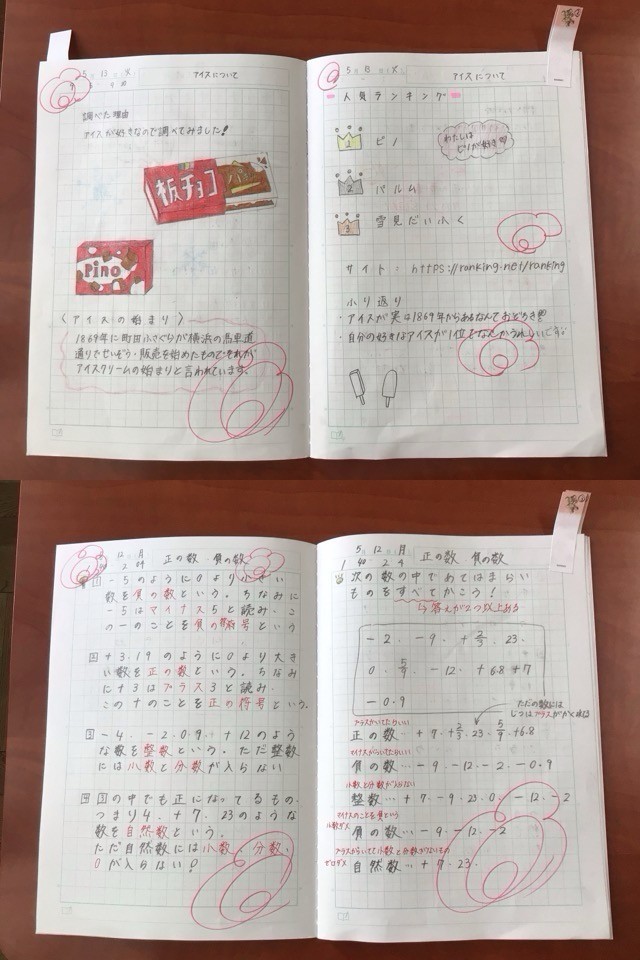 5 13 火
アイスについて
調べた理由
アイスが好きなので調べてみました!
板チョコ
Pino
〈アイスの始まり〉
1869年に町田ふさぞうが横浜の馬車道
通りでせいぞう・販売を始めたものでそれが
アイスクリームの始まりと言われています。
5 13 火
アイスについて
人気ランキング
1 ピノ
わたしは
ピノが好き
2 パルム
3 雪見だいふく
サイト: https://ranking.net/ranking
ふり返り
・アイスが実は1869年からあるなんておどろき
・自分の好きなアイスが1位でなんかうれしいです
12 月
正の数 負の数
-5のように0より小さい
数を負の数という。ちなみに
-5はマイナス5と読み、こ
の-のことを負の符号という
+3.19のように0より大き
い数を正の数という。ちなみ
に+3はプラス3と読み
この+のことを正の符号という。
-4. -2 0. 9. +12のよう
な数を整数という。ただ整数
には小数と分数が入らない
の中でも正になってるもの、
つまり4. +7. 23のような
数を自然数という。
ただ自然数には小数、分数、
0が入らない!
5 12 月
正の数 負の数
次の数の中であてはまらい
ものをすべてかこう!
答えが2つ以上ある
-2. -9. +2/3. 23.
0. 5/9. -12. +6.8 +7
-0.9
ただの数には
じつはプラスがかくれてる
プラスがついてたらいい
正の数… +7. +2/3. 23. 5/9 +6.8
マイナスがついてたらいい
負の数… -9. -12. -2. -0.9
小数と分数が入らない
整数… +7. -9. 23. 0. -12. -2
マイナスのことを負という
小数ダメ
負の数… -9. -12. -2
ゼロダメ
自然数… +7. 23.